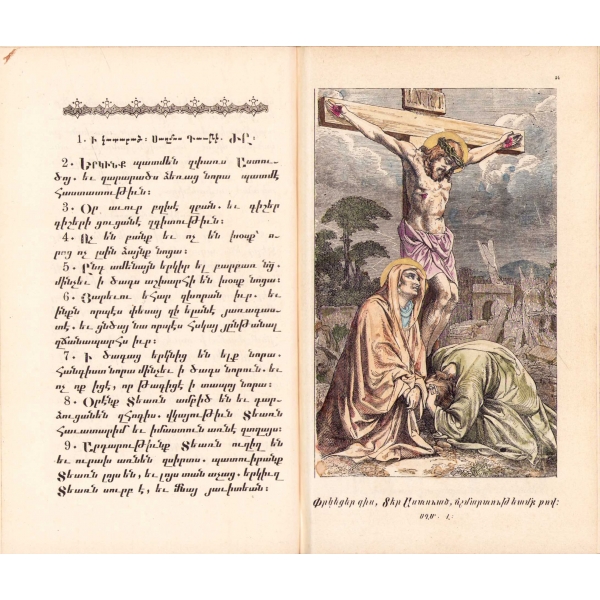 1. Ի կատարած։ Սաղմոս Դաւթի. ԺԸ։
2. Երկինք պատմեն զփառս Աստու-
ծոյ. եւ զարարածս ձեռաց նորա պատմէ
հաստատութիւն։
3. Օր աւուր բղխէ զբան. եւ գիշեր
գիշերի ցուցանէ զգիտութիւն։
4. Ոչ են բանք եւ ոչ են խօսք՝ ո-
րոց ոչ լսին ձայնք նոցա։
5. Ընդ ամենայն երկիր ել բարբառ նց.
մինչեւ ի ծագս աշխարհի են խօսք նոցա։
6. Յարեւու եհար զխորան իւր. եւ
ինքն որպէս փեսայ զի ելանէ յառագաս-
տէ. եւ ցնծայ նա որպէս հսկայ յընթանալ
զճանապարհս իւր։
7. Ի ծագաց երկնից են ելք նորա.
հանգիստ նորա մինչեւ ի ծագս նորուն. եւ
ոչ ոք իցէ, որ թագիցէ ի տապոյ նորա։
8. Օրէնք Տեառն ամբիծ են եւ դար-
ձուցանեն զհոգիս. վկայութիւն Տեառն
հաւատարիմ եւ իմաստուն առնէ զտղայս։
9. Արդարութիւնք Տեառն ուղիղ են
եւ ուրախ առնեն զսիրտս. պատուիրանք
Տեառն լոյս են, եւ լոյս տան աչաց. երկիւղ
Տեառն սուրբ է, եւ մնայ յաւիտեան։
Փրկեցեր զիս, Տէր Աստուած, ճշմարտութեամբ քով։
ՍՂՄ. Լ։